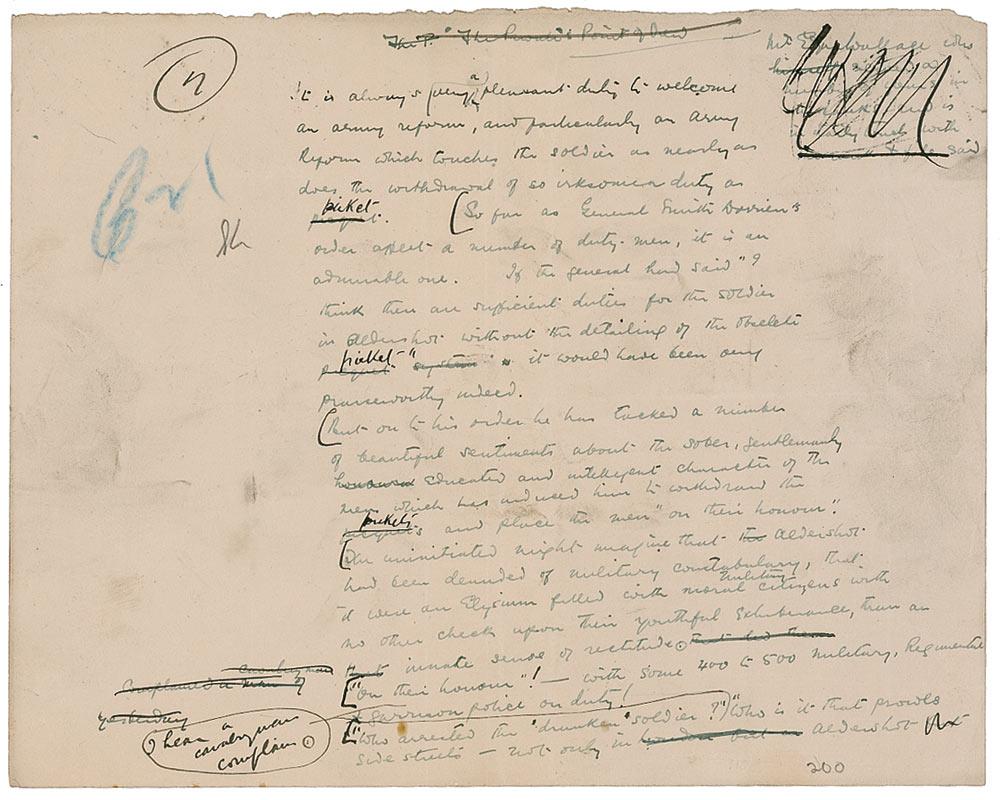 The P. "The Private's Point of View
Mr Edgar Wallace who
himself
in
is
with
said
It is always (very) a pleasant duty to welcome
an army reform, and particularly an Army
Reform which touches the soldier as nearly as
does the withdrawal of so irksome a duty as
picket. (So far as General Smith Dorrien's
order affect a number of duty-men, it is an
admirable one. If the general had said "I
think there are sufficient duties for the soldier
in Aldershot without the detailing of the obsolete
picket" system " it would have been very
praiseworthy indeed.
(But on to his order he has tacked a number
of beautiful sentiments about the sober, gentlemanly
honoured educated and intelligent character of the
men which has induced him to withdraw the
pickets and place the men "on their honour".
(An uninitiated might imagine that the Aldershot
had been denuded of military constabulary, that
it were an Elysium filled with moral military citizens with
no other check upon their youthful exhuberance, than an
that innate sense of rectitude. that had them
["On their honour"! — with some 400 to 500 military, Regimental
& Garrison police on duty!
["Who arrested the "drunken" soldier?") "Who is it that prowls
side streets — not only in London but in Aldershot
cavalry man
complained a man of
yesterday
I hear a
cavalry man
complain
200